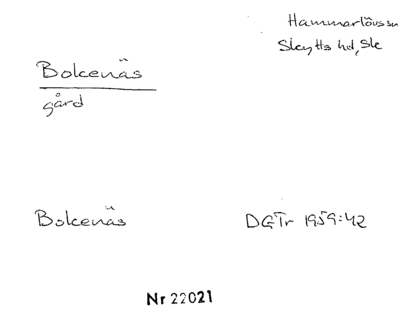 Hammarlövs sn
Skytts hd, Sk
Bokenäs
gård
Bokenäs
DGTr 1959:42
Nr 22021